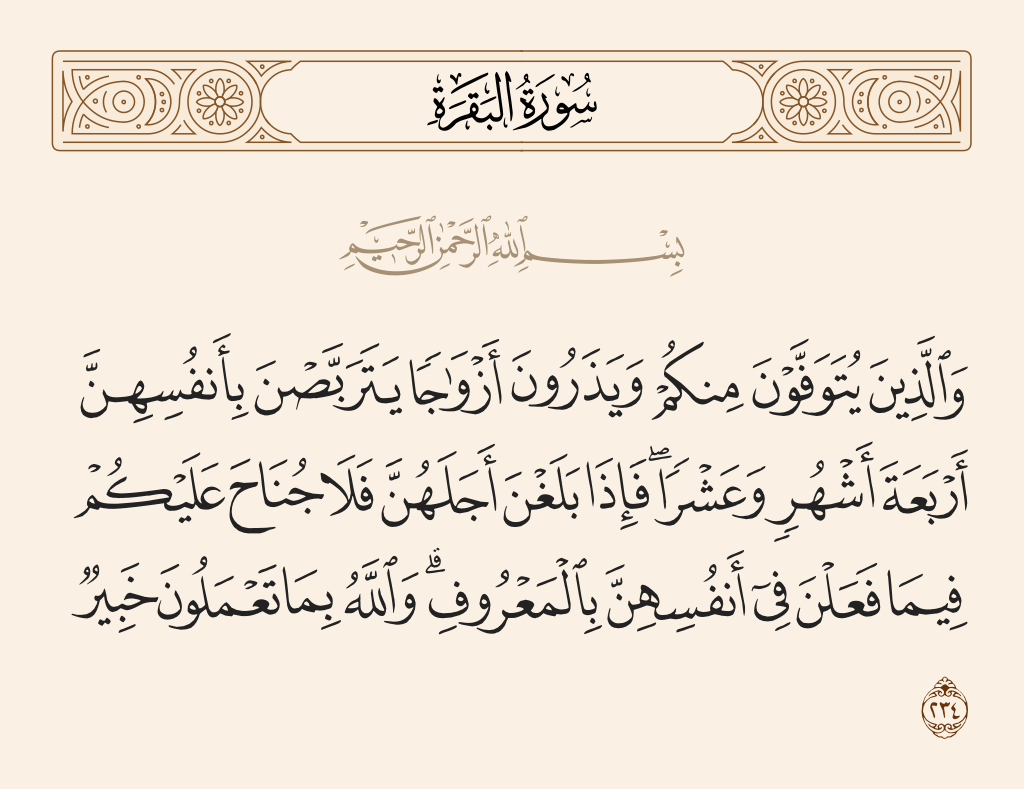 سُورَةُ الْبَقَرَةِ
بِسْمِ ٱللَّهِ ٱلرَّحْمَٰنِ ٱلرَّحِيمِ
وَٱلَّذِينَ يُتَوَفَّوْنَ مِنكُمْ وَيَذَرُونَ أَزْوَٰجًا يَتَرَبَّصْنَ بِأَنفُسِهِنَّ
أَرْبَعَةَ أَشْهُرٍ وَعَشْرًا ۖ فَإِذَا بَلَغْنَ أَجَلَهُنَّ فَلَا جُنَاحَ عَلَيْكُمْ
فِيمَا فَعَلْنَ فِىٓ أَنفُسِهِنَّ بِٱلْمَعْرُوفِ ۗ وَٱللَّهُ بِمَا تَعْمَلُونَ خَبِيرٌ
٢٣٤